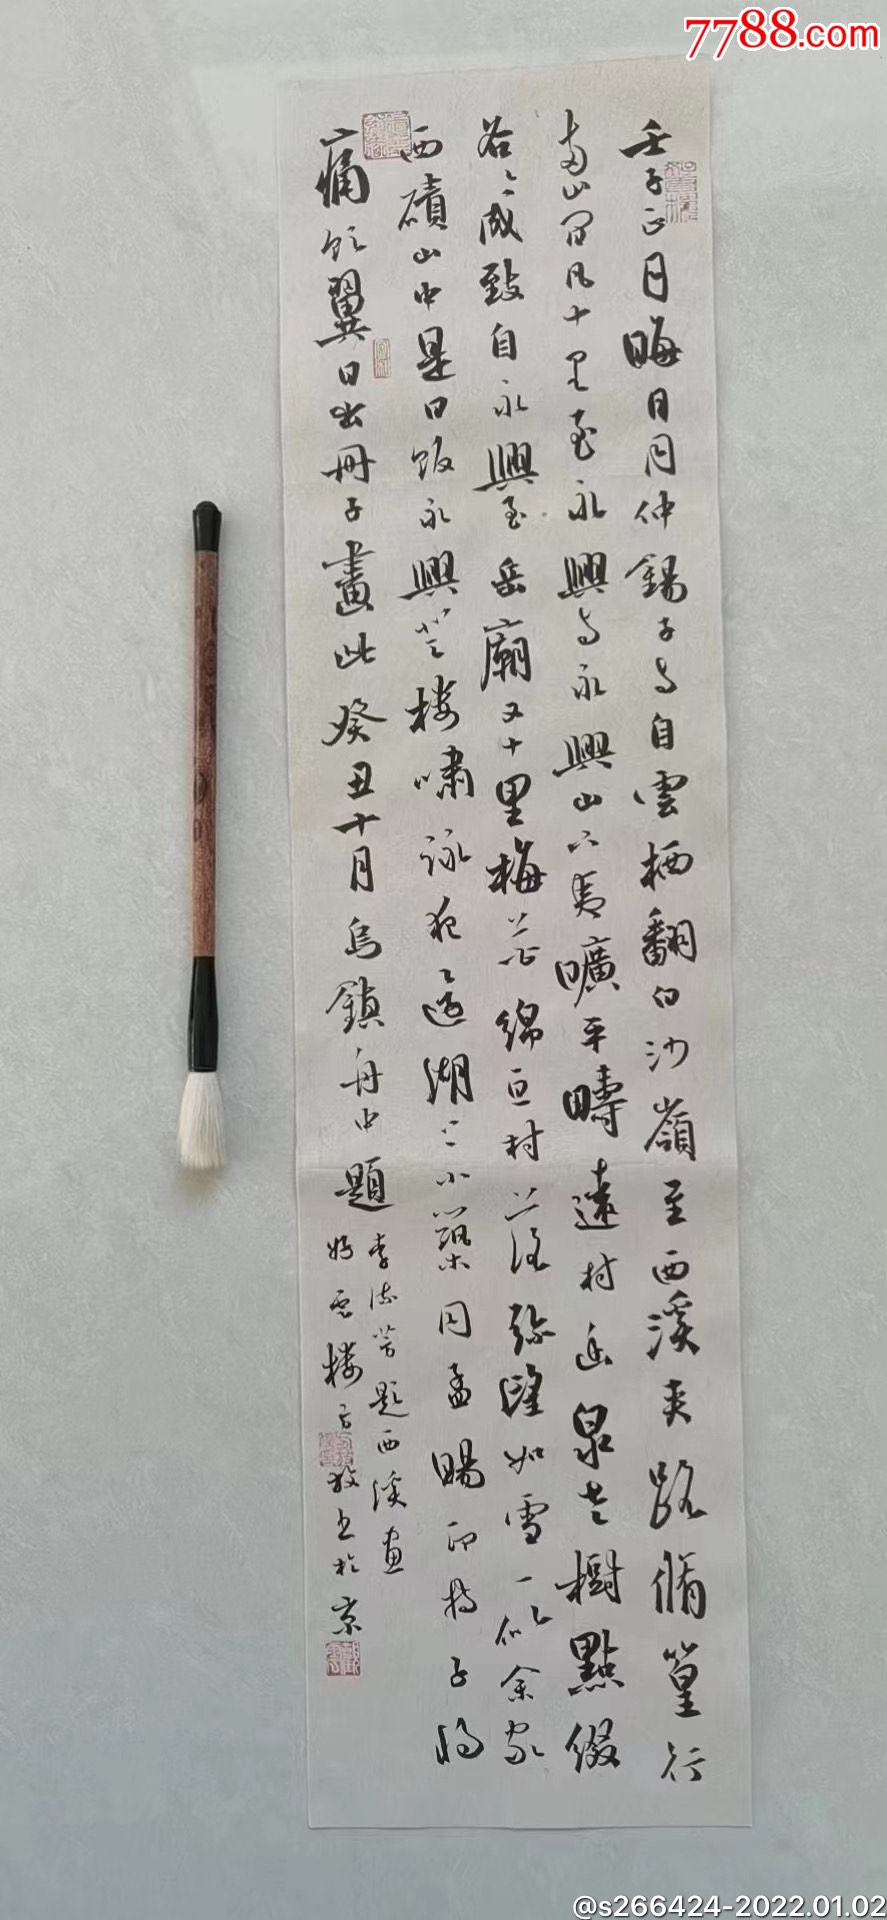 7788.com
壬子正月晦日同仲錫子与自雲栖翻白沙嶺至西溪夾路脩篁行
两山間凡十里至永興与永興山下夷曠平疇遠村幽泉老樹點綴
各各咸致自永興至岳廟又十里梅花綿亘村落彌望如雪一似余家
西磧山中是日飯永興登樓嘯詠夜還湖上小築同孟暘印持子將
痛飲翼日出冊子畫此癸丑十月烏鎮舟中題
李流芳題西溪畫
樓
書於京
@s266424-2022.01.02